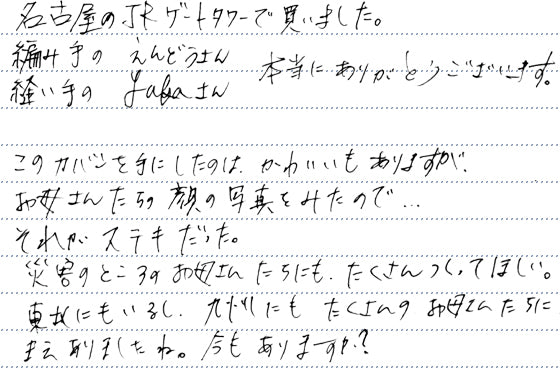 名古屋のJRゲートタワーで買いました。
編み手の えんどうさん
縫い手の さん 本当にありがとうございます。
このカバンを手にしたのは、かわいいもありますが、
お母さんたちの顔の写真をみたので…
それがステキだった。
災害のところのお母さんたちにも、たくさんつくってほしい。
東北にもいるし、九州にもたくさんのお母さんたちに
まえありましたね。今もありますか？